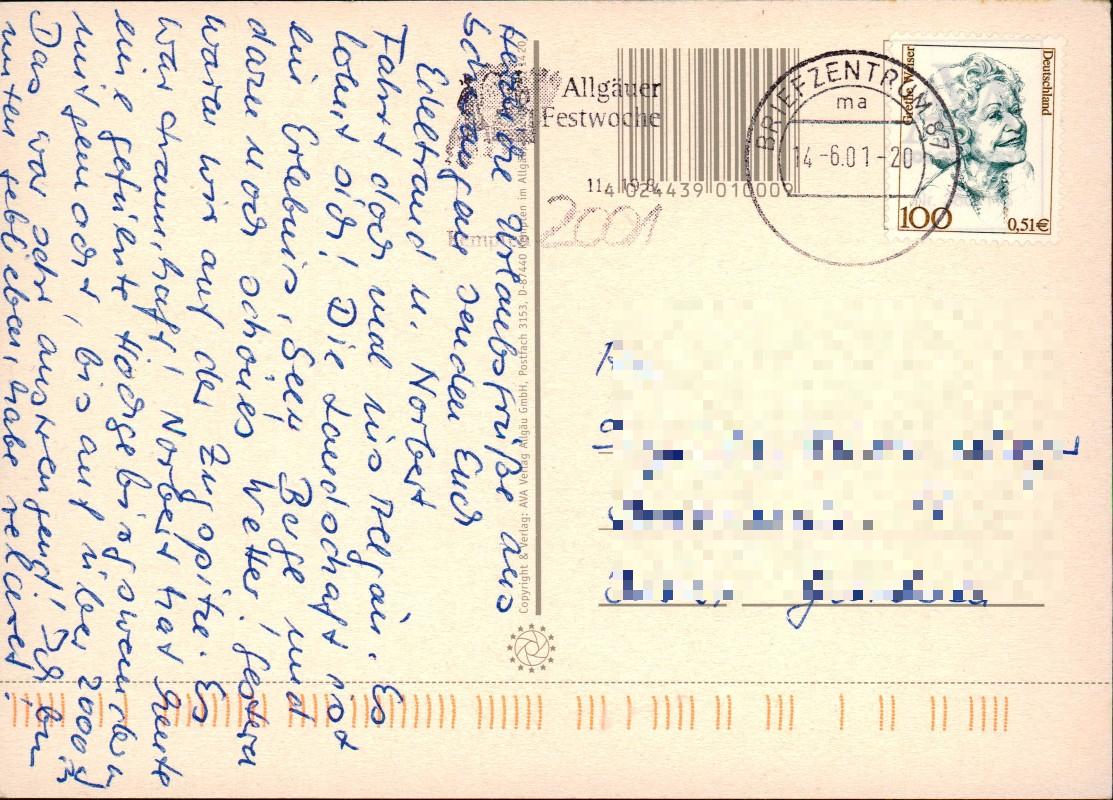 Herzliche Urlaubsgrüße aus
Schwangau senden Euch
Edeltraud u. Norbert
Fahrt doch mal ins Allgäu. Es
lohnt sich! Die Landschaft ist
ein Erlebnis, Seen, Berge und
dazu noch schönes Wetter! Gestern
waren wir auf der Zugspitze. Es
war traumhaft! Norbert hat heute
eine geführte Hochgebirgswanderung
mitgemacht, bis auf über 2000 m
Das war sehr anstrengend! Ich bin
unten geblieben, habe relaxt!
Copyright & Verlag: AVA Verlag Allgäu GmbH, Postfach 3153, D-87440 Kempten im Allgäu
Allgäuer
Festwoche
Kempten
2001
4 024439 010009
BRIEFZENTRUM 87
ma
14-6.01-20
Grethe Weiser
Deutschland
100
0,51€